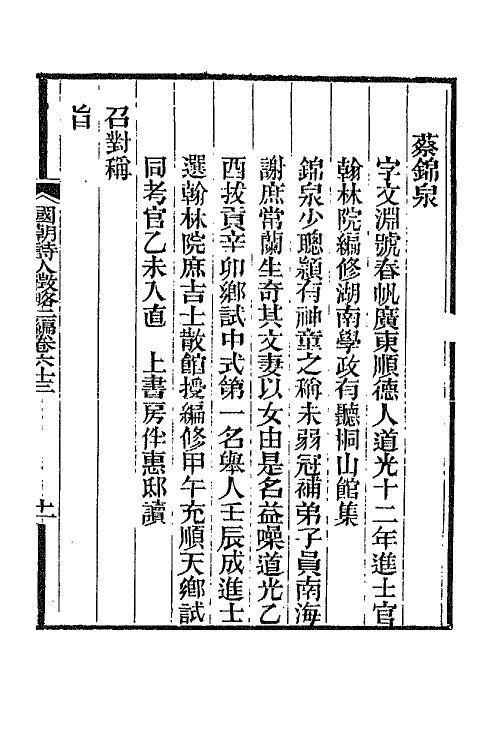 蔡錦泉
字文淵號春帆廣東順德人道光十二年進士官
翰林院編修湖南學政有聽桐山館集
錦泉少聰頴有神童之稱未弱冠補弟子員南海
謝庶常蘭生奇其文妻以女由是名益噪道光乙
酉拔貢辛卯鄉試中式第一名舉人壬辰成進士
選翰林院庶吉士散館授編修甲午充順天鄉試
同考官乙未入直　上書房侍惠邸讀
召對稱
旨
國朝詩人徵略二編卷六十三
十一